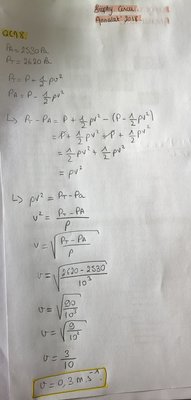 QCM 8.
P_A = 2530 Pa
P_T = 2620 Pa
P_T = P + 1/2 ρv²
P_A = P - 1/2 ρv²
↳ P_T - P_A = P + 1/2 ρv² - (P - 1/2 ρv²)
= P + 1/2 ρv² + P + 1/2 ρv²
= 1/2 ρv² + 1/2 ρv²
= ρv²
↳ ρv² = P_T - P_A
v² = (P_T - P_A)/ρ
v = √((P_T - P_A)/ρ)
v = √((2620 - 2530)/10³)
v = √(90/10³)
v = √(9/10²)
v = 3/10
v = 0,3 m.s⁻¹.